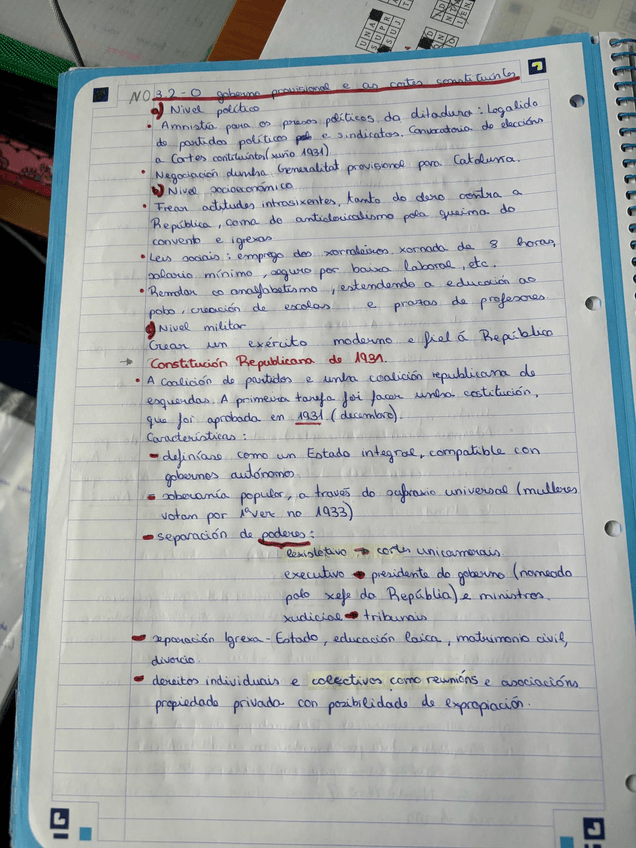 NO 3.2 - O goberno provisional e as cortes constituintes
a) Nivel político
• Amnistía para os presos políticos da ditadura: Legalida
de partidos políticos e sindicatos. Convocatoria de eleccións
a Cortes constituíntes (xuño 1931)
• Negociación dunha Generalitat provisional para Cataluña.
b) Nivel socioeconómico
• Frear actitudes intransixentes, tanto do clero contra a
República, coma do anticlericalismo pola queima do
convento e igrexas
• Leis sociais: emprego dos xornaleiros, xornada de 8 horas,
salario mínimo, seguro por baixa laboral, etc.
• Rematar co analfabetismo, estendendo a educación ao
pobo, creación de escolas e prazas de profesores.
c) Nivel militar
Crear un exército moderno e fiel á República
→ Constitución Republicana de 1931.
• A coalición de partidos e unha coalición republicana de
esquerdas. A primeira tarefa foi facer unha costitución,
que foi aprobada en 1931 (decembro).
Características:
- definíase como un Estado integral, compatible con
gobernos autónomos.
- soberanía popular, a través do sufraxio universal (mulleres
votam por 1ª vez no 1933)
- separación de poderes:
lexislativo → cortes unicamerais
executivo → presidente do goberno (nomeado
polo xefe da República) e ministros.
xudicial → tribunais
- separación Igrexa-Estado, educación laica, matrimonio civil,
divorcio.
- dereitos individuais e colectivos como reunións e asociacións
propiedade privada con posibilidade de expropiación.